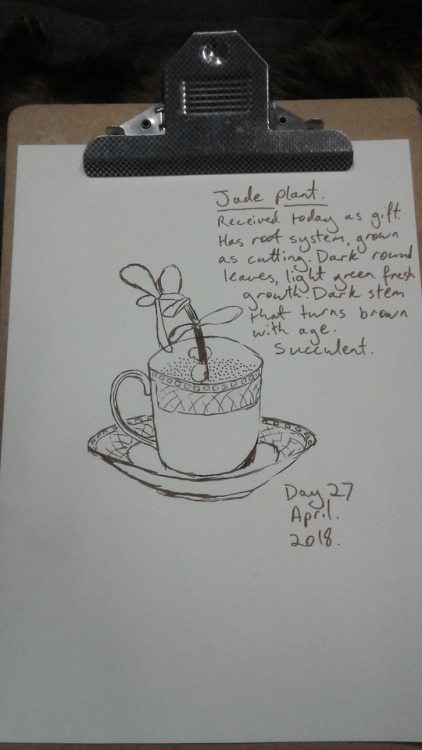 Jade plant.
Received today as gift.
Has root system, grown
as cutting. Dark round
leaves, light green fresh
growth. Dark stem
that turns brown
with age.
Succulent.
Day 27
April.
2018.